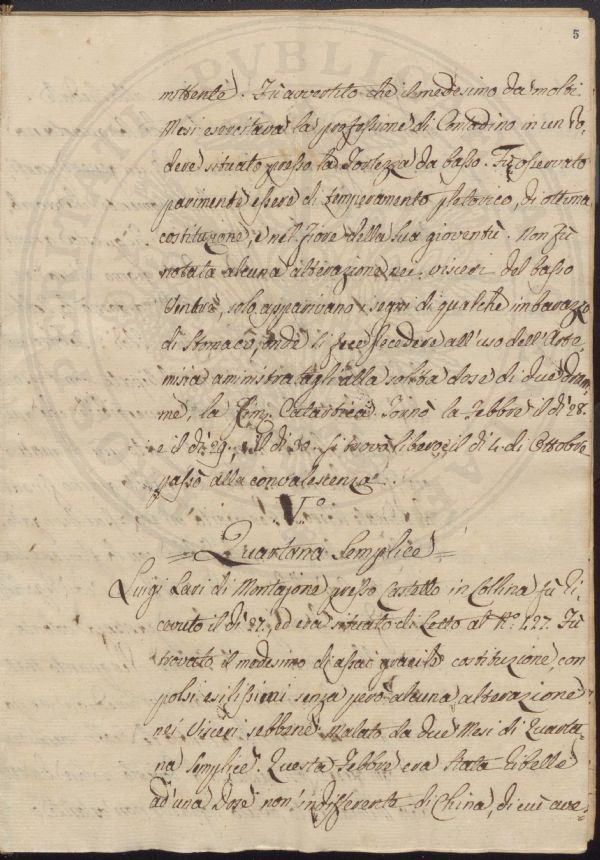 5
mittente). Fù avvertito che il medesimo da molti
Mesi esercitava la professione di Contadino in un Po-
dere situato presso la Fortezza da basso. Fù osservato
parimente essere di temperamento pletorico, di ottima
costituzione, e nel fiore della sua gioventù. Non fù
notata alcuna alterazione nei visceri del basso
Ventre, solo apparivano i segni di qualche imbarazzo
di Stomaco, onde si fece precedere all'uso dell'Arte
misia aministratagli alla solita dose di due dram
me, la Catartica. Tornò la Febbre il dì 28.
e il dì 29. Il dì 30. si trovò libero, e il dì 4. di Ottobre
passò alla convalescenza.
V.º
= Quartana Semplice =
Luigi Lari di Montajone presso Castello in Collina fù Ri-
cevuto il dì 27. ed era situato di Letto al Nº. 427. Fù
trovato il medesimo di assai gracile costituzione, con
polsi esilissimi senza però alcuna alterazione
nei Visceri sebbene Malato da due Mesi di Quarta-
na Semplice. Questa Febbre era stata Ribelle
ad'una Dose non'indifferente di China, di cui ave-